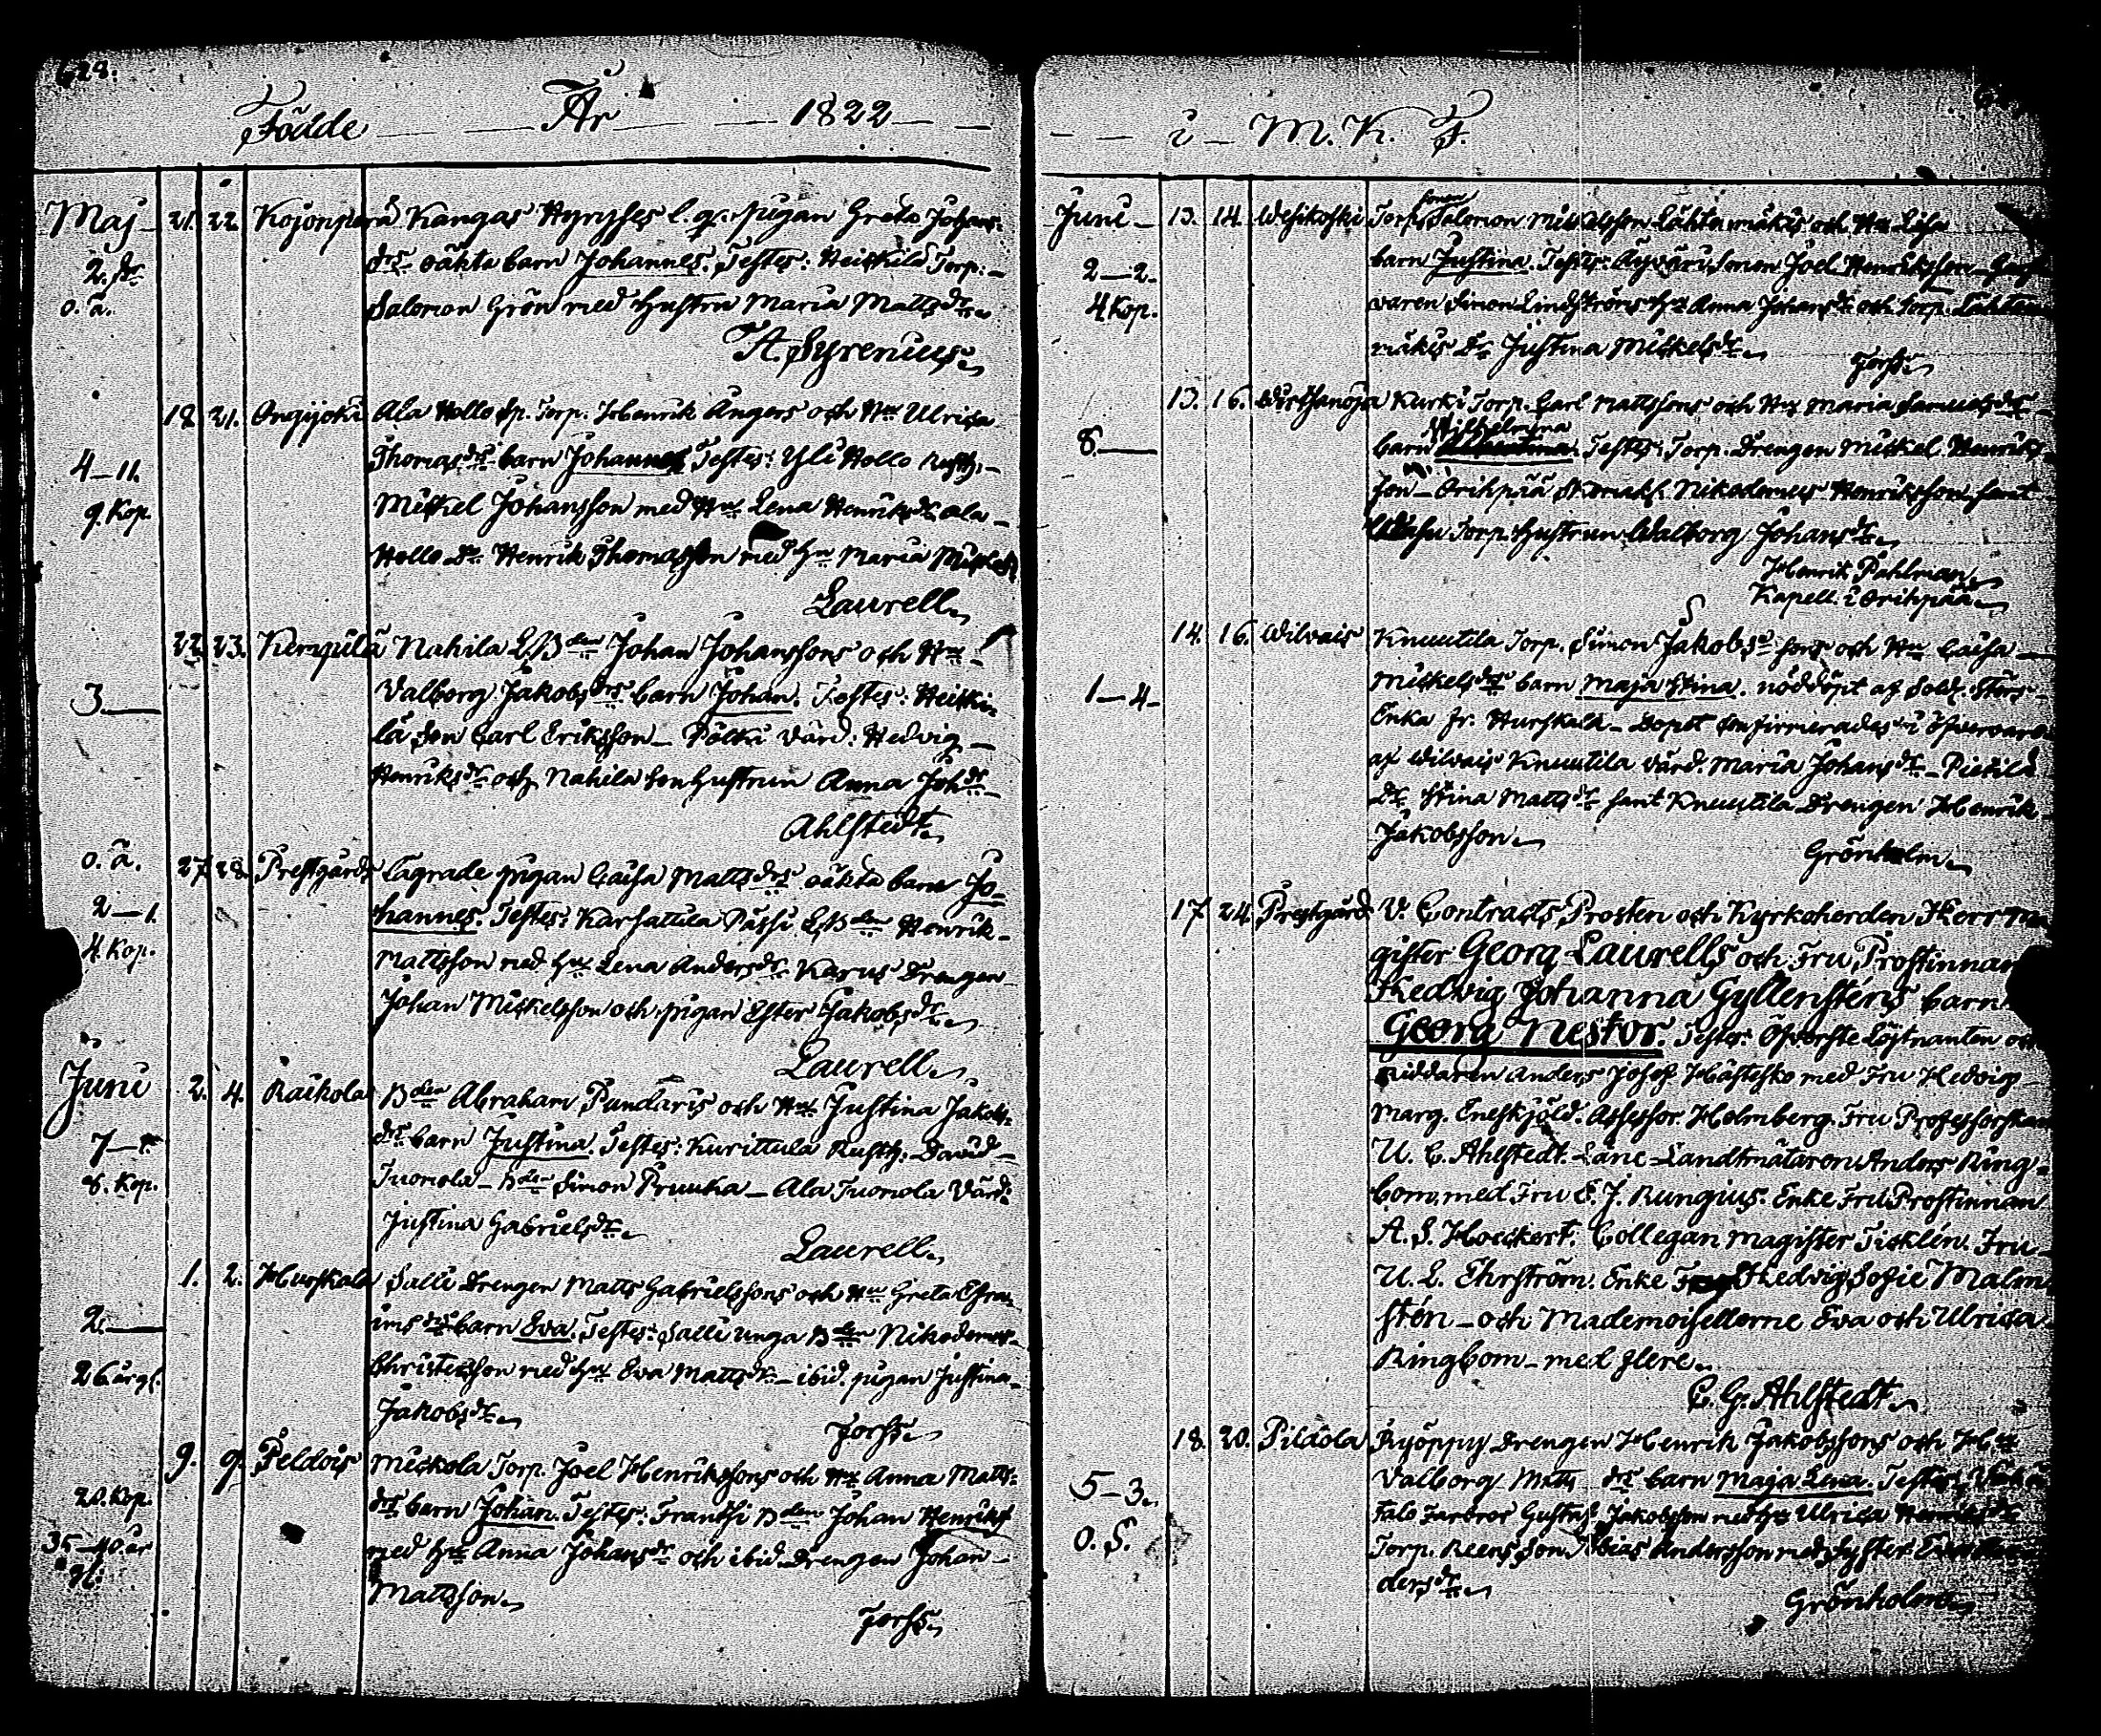 628.
Födde År 1822
Maj 21. 22. Kojonperä Kangas Hyryses l. q. pigan Greta Johans
2. dr drs oäkta barn Johannes. Testes: Heickilä Torp.
o. ä. Salomon Grön med hustru Maria Mattsdr
A. Syrenius
18 21. Ongijoki Ala Hollo Sp. Torp. Henrik Ångers och Hu Ulrica
4-11. Thomasdrs barn Johannes Testes: Yli Hollo Rusth.
9. Kop. Mickel Johansson med Hu Lena Henriksdr Ala
Hollo Dr. Henrik Thomasson med hu Maria
Laurell
22. 23. Kempilä Nahila L. Bden Johan Johanssons och Hu
3. Valborg Jakobsdrs barn Johan. Testes: Heicki
lä Son Carl Eriksson Pölki Värd: Hedvig
Henriksdr och Nahila sonhustrun Anna Johdr
Ahlstedt
o. ä. 27 28. Prestgårds Lagrade pigan Caisa Mattsdrs oäkta barn Jo
2-1. hannes. Testes: Karsattila Passi L. Bden Henrik
4. Kop. Mattsson med hu Lena Andersdr Karus Drengen
Johan Mickelsson och pigan Ester Jakobsdr
Laurell
Juni 2. 4. Raikola Bden Abraham Pundaris och Hu Justina Jakobs
7 drs barn Justina. Testes: Kurittula Rusth. David
8. Kop. Tuomola Bden Simon Pruuka Ala Tuomola Värd:
Justina Gabrielsdr
Laurell
1. 2. Hurskala Salli Drengen Matts Gabrielssons och Hu Greta Efra
2. ims drs barn Eva. Testes: Salli unga Bden Nikodemus
26 år gl. Christersson med hu Eva Mattsdr ibid. pigan Justina
Jakobsdr
Forss
9. 9. Peldois Mickola Torp. Joel Henrikssons och Hu Anna Matts
20. Kop. drs barn Johan. Testes: Franssi Bden Johan Henriks
35-40 år med hu Anna Johansdr och ibid. Drengen Johan
gl: Mattsson
Forss
i M. K. F.
Juni 13. 14. Wesikoski Torp. sonen Salomon Mickelsson Lähtenmäkis och Hu Lisa
2-2. barn Justina. Testes: Äyväri Sonen Joel Henriksson
4 Kop. varen Simon Lindströms hu Anna Johansdr och Torp. Lähten
mäkis Dr Justina Mickelsdr
Forss
13. 16. Wirtsanoja Kurki Torp. Carl Mattssons och Hu Maria Samuelsdrs
8. barn Wilhelmina Testes: Torp. Drengen Mickel Henriks
son Orihpää Nikodemus Henriksson samt
Torp. hustrun Walborg Johansdr
Henrik Pahlman
Kapell. i Orihpää
14. 16. Wilvais Knuutila Torp. Simon Jakobssons och Hu Caisa
1-4 Mickelsdrs barn Maja Stina. nöddöpt af Sold. Störs
Enka fr. Hurskala Dopet confirmerades i öfvervaro
af Wilvais Knuutila Värd. Maria Johansdr Pietilä
Dr Stina Mattsdr samt Knuutila Drengen Henrik
Jakobsson
Grönholm
17 24. Prestgård V. Contracts Prosten och Kyrkoherden Herr Ma
gister Georg Laurells och Fru Prostinnan
Hedvig Johanna Gyllensténs barn
Georg Nestor. Testes: Öfverste Löjtnanten och
Riddaren Anders Josef Hästesko med Fru Hedvig
Marg. Eneskjöld. Assessor Holmberg. Fru Professorskan
U. C. Ahlstedt. Läne Landtmätaren Anders Ring
bom, med Fru E. J. Rungius. Enke Fru Prostinnan
A. S. Hoeckert. Collegan Magister Ticklén. Fru
U. L. Ehrström. Enke Fru Hedvig Sofie Malm
stén och Mademoisellerne Eva och Ulrica
Ringbom med flere
C. G. Ahlstedt
18. 20. Pildola Ryöppy Drengen Henrik Jakobssons och Hu
5-3. Valborg Matts drs barn Maja Lena. Testes:
talo Farbror Gustaf Jakobsson med hu Ulrica Henriksdr
o. S. Torp. Reens Son Tobias Andersson med Syster
dersdr
Grönholm